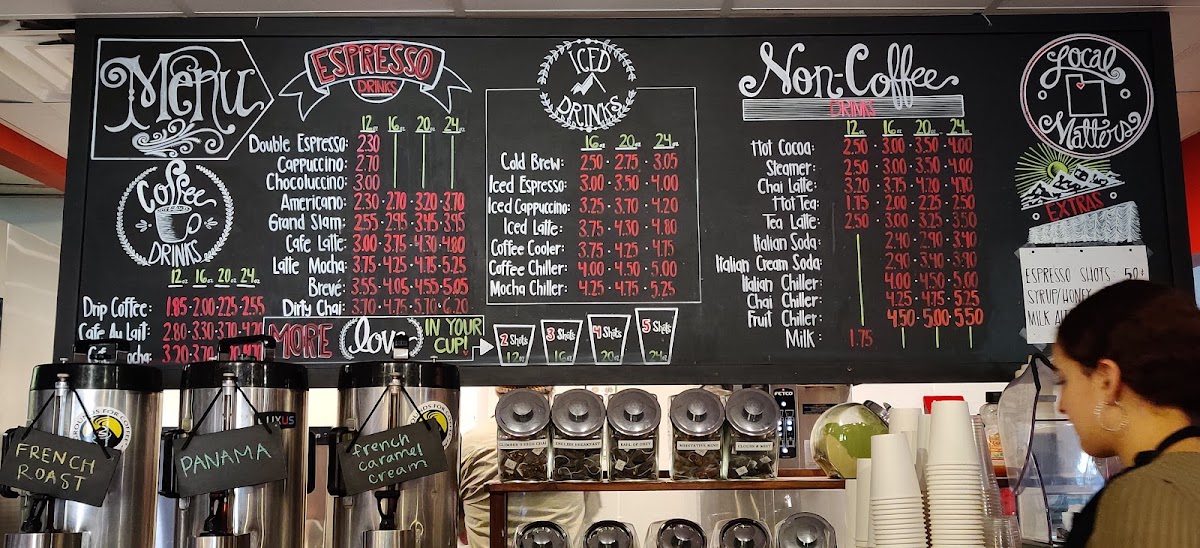 Menu
Coffee
DRINKS
12oz 16oz 20oz 24oz
Drip Coffee: 1.85 · 2.00 · 2.25 · 2.55
Cafe Au Lait: 2.80 · 3.30 · 3.70 · 4.20
ESPRESSO
DRINKS
12oz 16oz 20oz 24oz
Double Espresso: 2.30
Cappuccino: 2.70
Chocoluccino: 3.00
Americano: 2.30 · 2.70 · 3.20 · 3.70
Grand Slam: 2.55 · 2.95 · 3.45 · 3.95
Cafe Latte: 3.00 · 3.75 · 4.30 · 4.80
Latte Mocha: 3.75 · 4.25 · 4.75 · 5.25
Brevé: 3.55 · 4.05 · 4.55 · 5.05
Dirty Chai: 3.70 · 4.75 · 5.70 · 6.20
MORE love IN YOUR CUP!
2 Shots 12oz
3 Shots 16oz
4 Shots 20oz
5 Shots 24oz
ICED
DRINKS
16oz 20oz 24oz
Cold Brew: 2.50 · 2.75 · 3.05
Iced Espresso: 3.00 · 3.50 · 4.00
Iced Cappuccino: 3.25 · 3.70 · 4.20
Iced Latte: 3.75 · 4.30 · 4.80
Coffee Cooler: 3.75 · 4.25 · 4.75
Coffee Chiller: 4.00 · 4.50 · 5.00
Mocha Chiller: 4.25 · 4.75 · 5.25
Non-Coffee
DRINKS
12oz 16oz 20oz 24oz
Hot Cocoa: 2.50 · 3.00 · 3.50 · 4.00
Steamer: 2.50 · 3.00 · 3.50 · 4.00
Chai Latte: 3.20 · 3.75 · 4.20 · 4.70
Hot Tea: 1.75 · 2.00 · 2.25 · 2.50
Tea Latte: 2.50 · 3.00 · 3.25 · 3.50
Italian Soda: 2.40 · 2.90 · 3.40
Italian Cream Soda: 2.90 · 3.40 · 3.90
Italian Chiller: 4.00 · 4.50 · 5.00
Chai Chiller: 4.25 · 4.75 · 5.25
Fruit Chiller: 4.50 · 5.00 · 5.50
Milk: 1.75
Local
Matters
EXTRAS
ESPRESSO SHOTS: 50¢
SYRUP/HONEY
MILK
FRENCH
ROAST
PANAMA
french
caramel
cream
LUXUS
FETCO